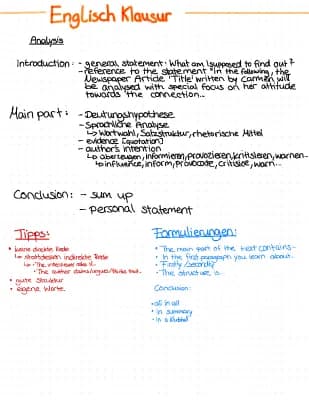 Englisch Klausur
Analysis
Introduction: - general statement: What am I supposed to find out?
- reference to the statement "In the following, the
Newspaper Article 'Title' written by Carmen will
be analysed with special focus on her attitude
towards the connection...
Main part: - Deutungshypothese
- Sprachliche Analyse
↳ Wortwahl, Satzstruktur, rhetorische Mittel
- evidence (quotation)
- author's intention
↳ überzeugen, informieren, provozieren, kritisieren, warnen...
↳ influence, inform, provocade, critisise, warn...
Conclusion: - sum up
- personal statement
Tipps:
• keine direkte Rede
↳ stattdessen indirekte Rede
↳ - The interviewer asks if...
- The author claims/argues/thinks that...
• gute Struktur
• eigene Worte
Formulierungen:
• The main part of the text contains...
• In the first paragraph you learn about...
• Firstly, Secondly
• The structure is...
Conclusion:
• all in all
• in summary
• in a nutshell